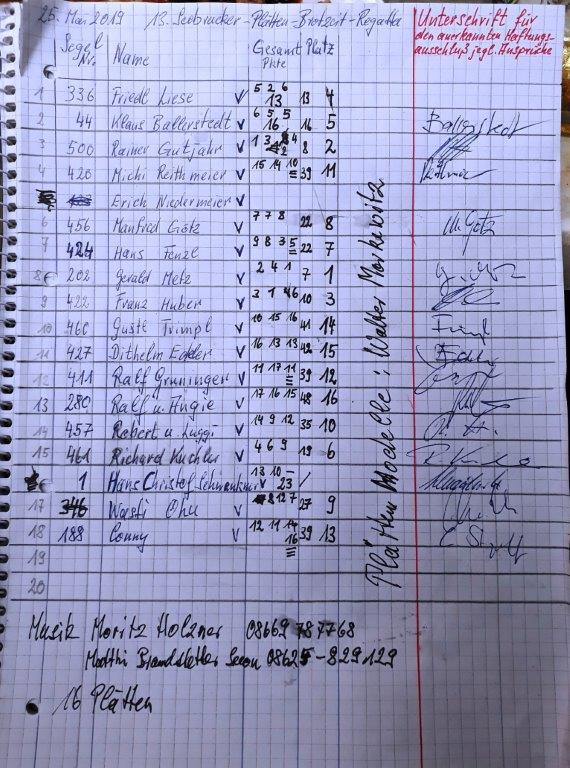 25. Mai 2019 13. Seebrucker-Plätten-Brotzeit-Regatta
Unterschrift für
den anerkannten Haftungs-
ausschluß jegl. Ansprüche
Segel Nr. Name Gesamt Pkte Platz
1 336 Friedl Liese V 5 2 6 13 13 4
2 44 Klaus Ballerstedt V 6 5 5 16 16 5 Ballerstedt
3 500 Rainer Gutjahr V 1 3 4 8 2
4 420 Michi Reithmeier V 15 14 10 39 11
Erich Niedermeier V
6 456 Manfred Götz V 7 7 8 22 8 M. Götz
7 424 Hans Fenzl V 9 8 3 5 22 7
8 202 Gerald Metz V 2 4 1 7 1
9 422 Franz Huber V 3 1 6 10 3
10 460 Guste Trimpl V 10 15 16 41 14
11 427 Dithelm Edder V 16 13 13 42 15
12 411 Ralf Gruninger V 11 17 11 39 12
13 280 Ralf u. Angie V 17 16 15 48 16
14 457 Robert u. Luggi V 14 9 12 35 10
15 461 Richard Kuchler V 4 6 9 19 6
1 Hans Christof V 13 10 – 23 /
17 346 Wasti Chu V 8 12 7 27 9
18 188 Conny V 12 11 16 39 13
19
20
Plätten Modelle: Walter Markewitz
Musik Moritz Holzner 08669 787768
Seeon 08625-829129
16 Plätten